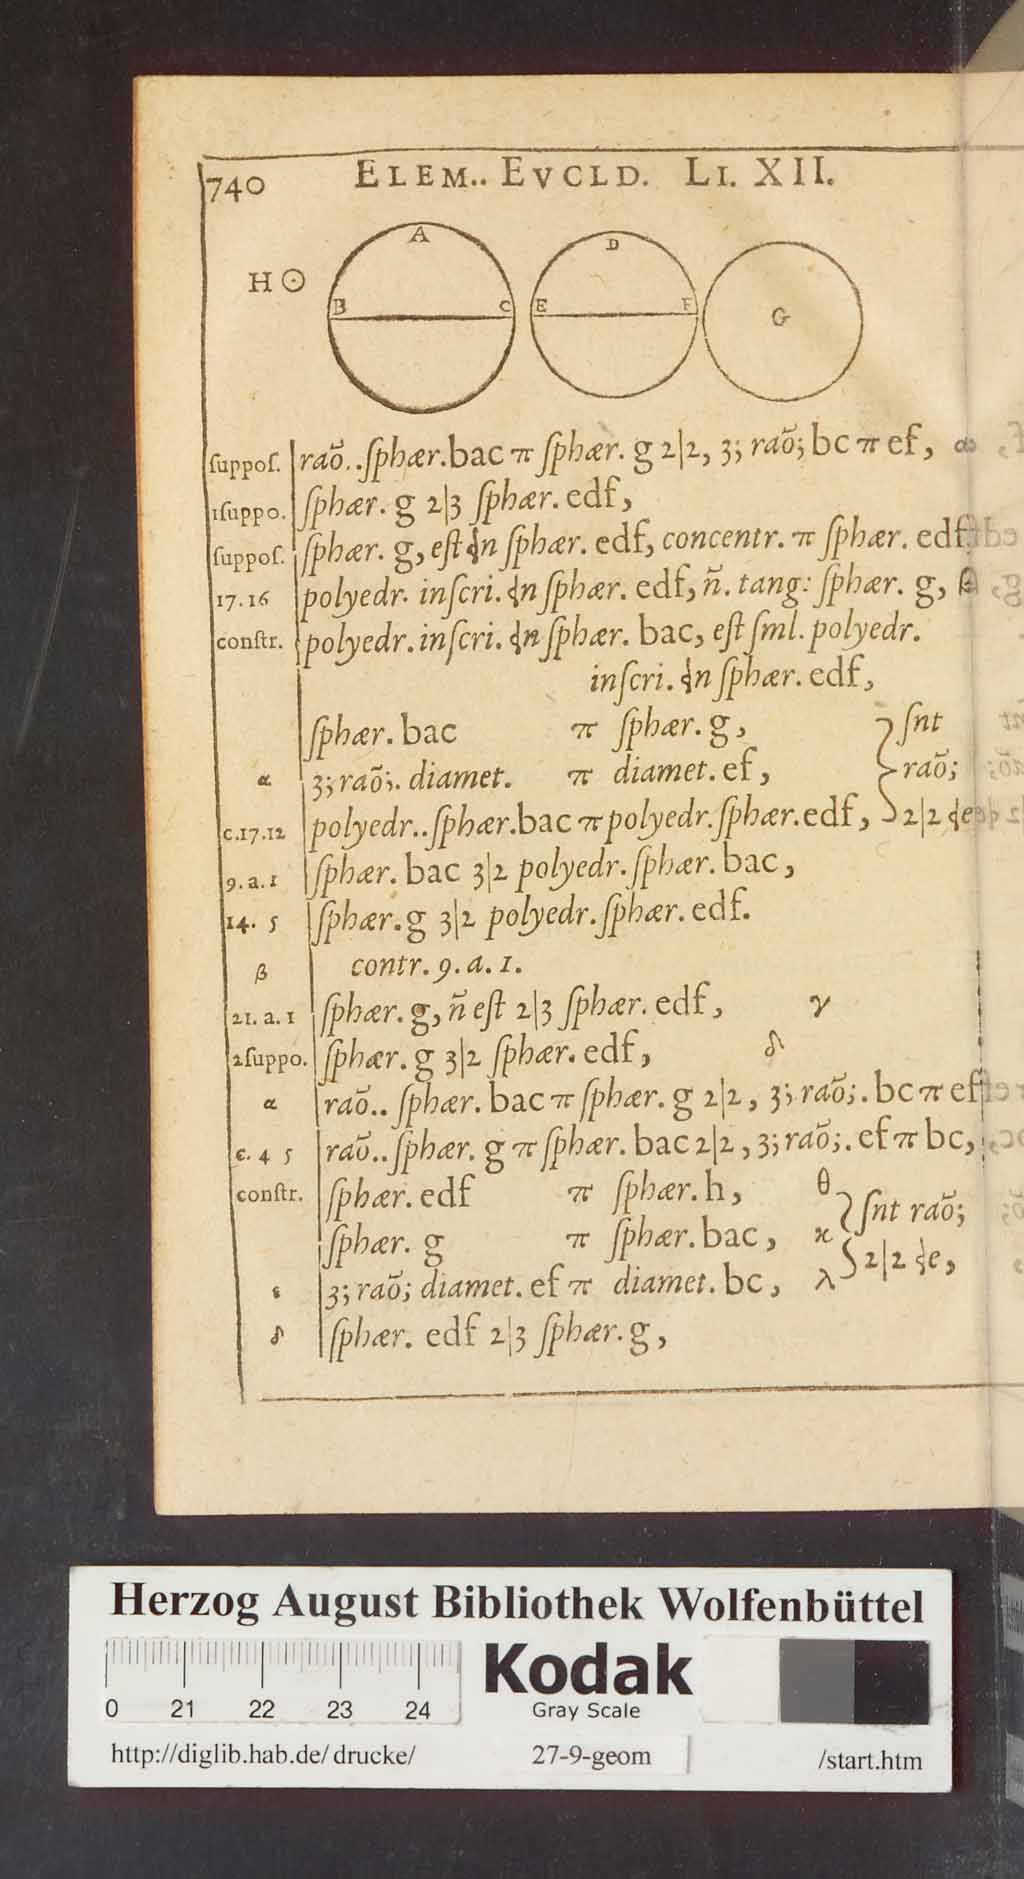 740 ELEM.. EVCLD. LI. XII.
A
D
H
B C
E F
G
ſuppoſ. raõ..ſphær.bac π ſphær. g 2|2, 3; raõ; bc π ef, α
1ſuppo. ſphær. g 2|3 ſphær. edf,
ſuppoſ. ſphær. g, eſt ɖn ſphær. edf, concentr. π ſphær. edf.
17.16 polyedr. inſcri. ɖn ſphær. edf, ñ. tang: ſphær. g, β
conſtr. polyedr. inſcri. ɖn ſphær. bac, eſt ſml. polyedr.
inſcri. ɖn ſphær. edf,
ſphær. bac π ſphær. g, ſnt
α 3; raõ;. diamet. π diamet. ef, raõ;
c.17.12 polyedr..ſphær.bac π polyedr.ſphær.edf, 2|2 ɖe
9. a. 1 ſphær. bac 3|2 polyedr. ſphær. bac,
14. 5 ſphær. g 3|2 polyedr. ſphær. edf.
β contr. 9. a. 1.
21. a. 1 ſphær. g, ñ eſt 2|3 ſphær. edf, γ
2ſuppo. ſphær. g 3|2 ſphær. edf, δ
α raõ.. ſphær. bac π ſphær. g 2|2, 3; raõ;. bc π ef
c. 4 5 raõ.. ſphær. g π ſphær. bac 2|2, 3; raõ;. ef π bc,
conſtr. ſphær. edf π ſphær. h, θ ſnt raõ;
ſphær. g π ſphær. bac, ϰ 2|2 ɖe,
ε 3; raõ; diamet. ef π diamet. bc, λ
δ ſphær. edf 2|3 ſphær. g,
Herzog August Bibliothek Wolfenbüttel
Kodak
Gray Scale
0 21 22 23 24
http://diglib.hab.de/drucke/ 27-9-geom /start.htm